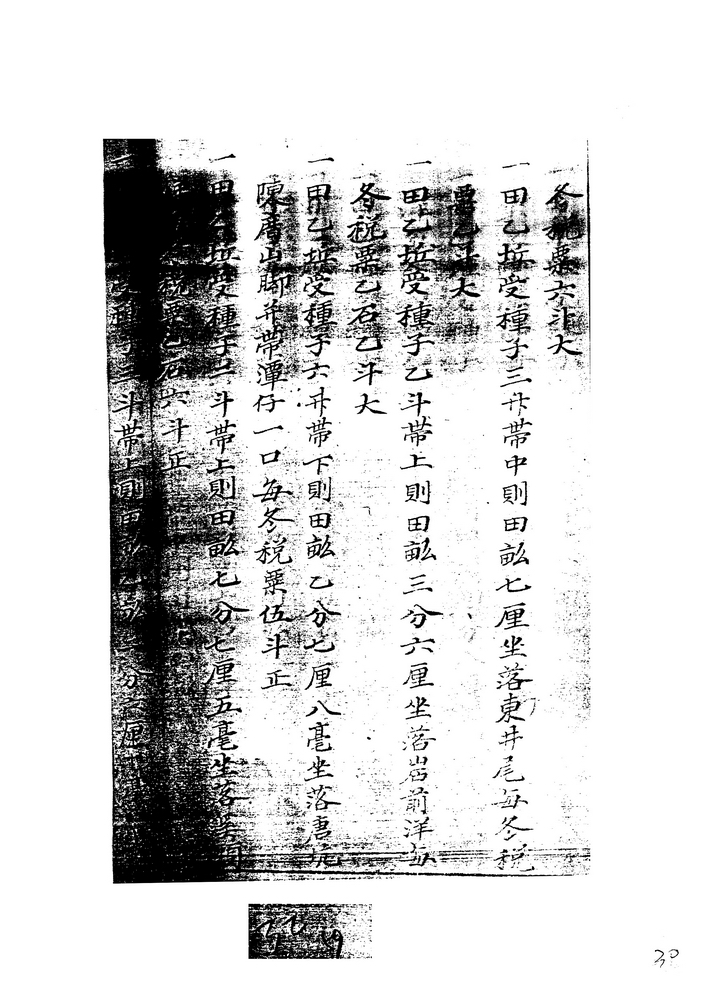 冬税粟六斗大
一田乙坵受種子三升帶中則田畝七厘坐落東井尾每冬税
粟乙斗大
一田乙坵受種子乙斗帶上則田畝三分六厘坐落岩前洋每
冬税粟乙石乙斗大
一田乙坵受種子六升帶下則田畝乙分七厘八毫坐落唐坑
陳厝山脚并帶潭仔一口每冬税粟伍斗正
一田乙坵受種子二斗帶上則田畝七分七厘五毫坐落
税粟乙石六斗正
一 受種子三斗帶上則田畝乙畝 分 厘
30